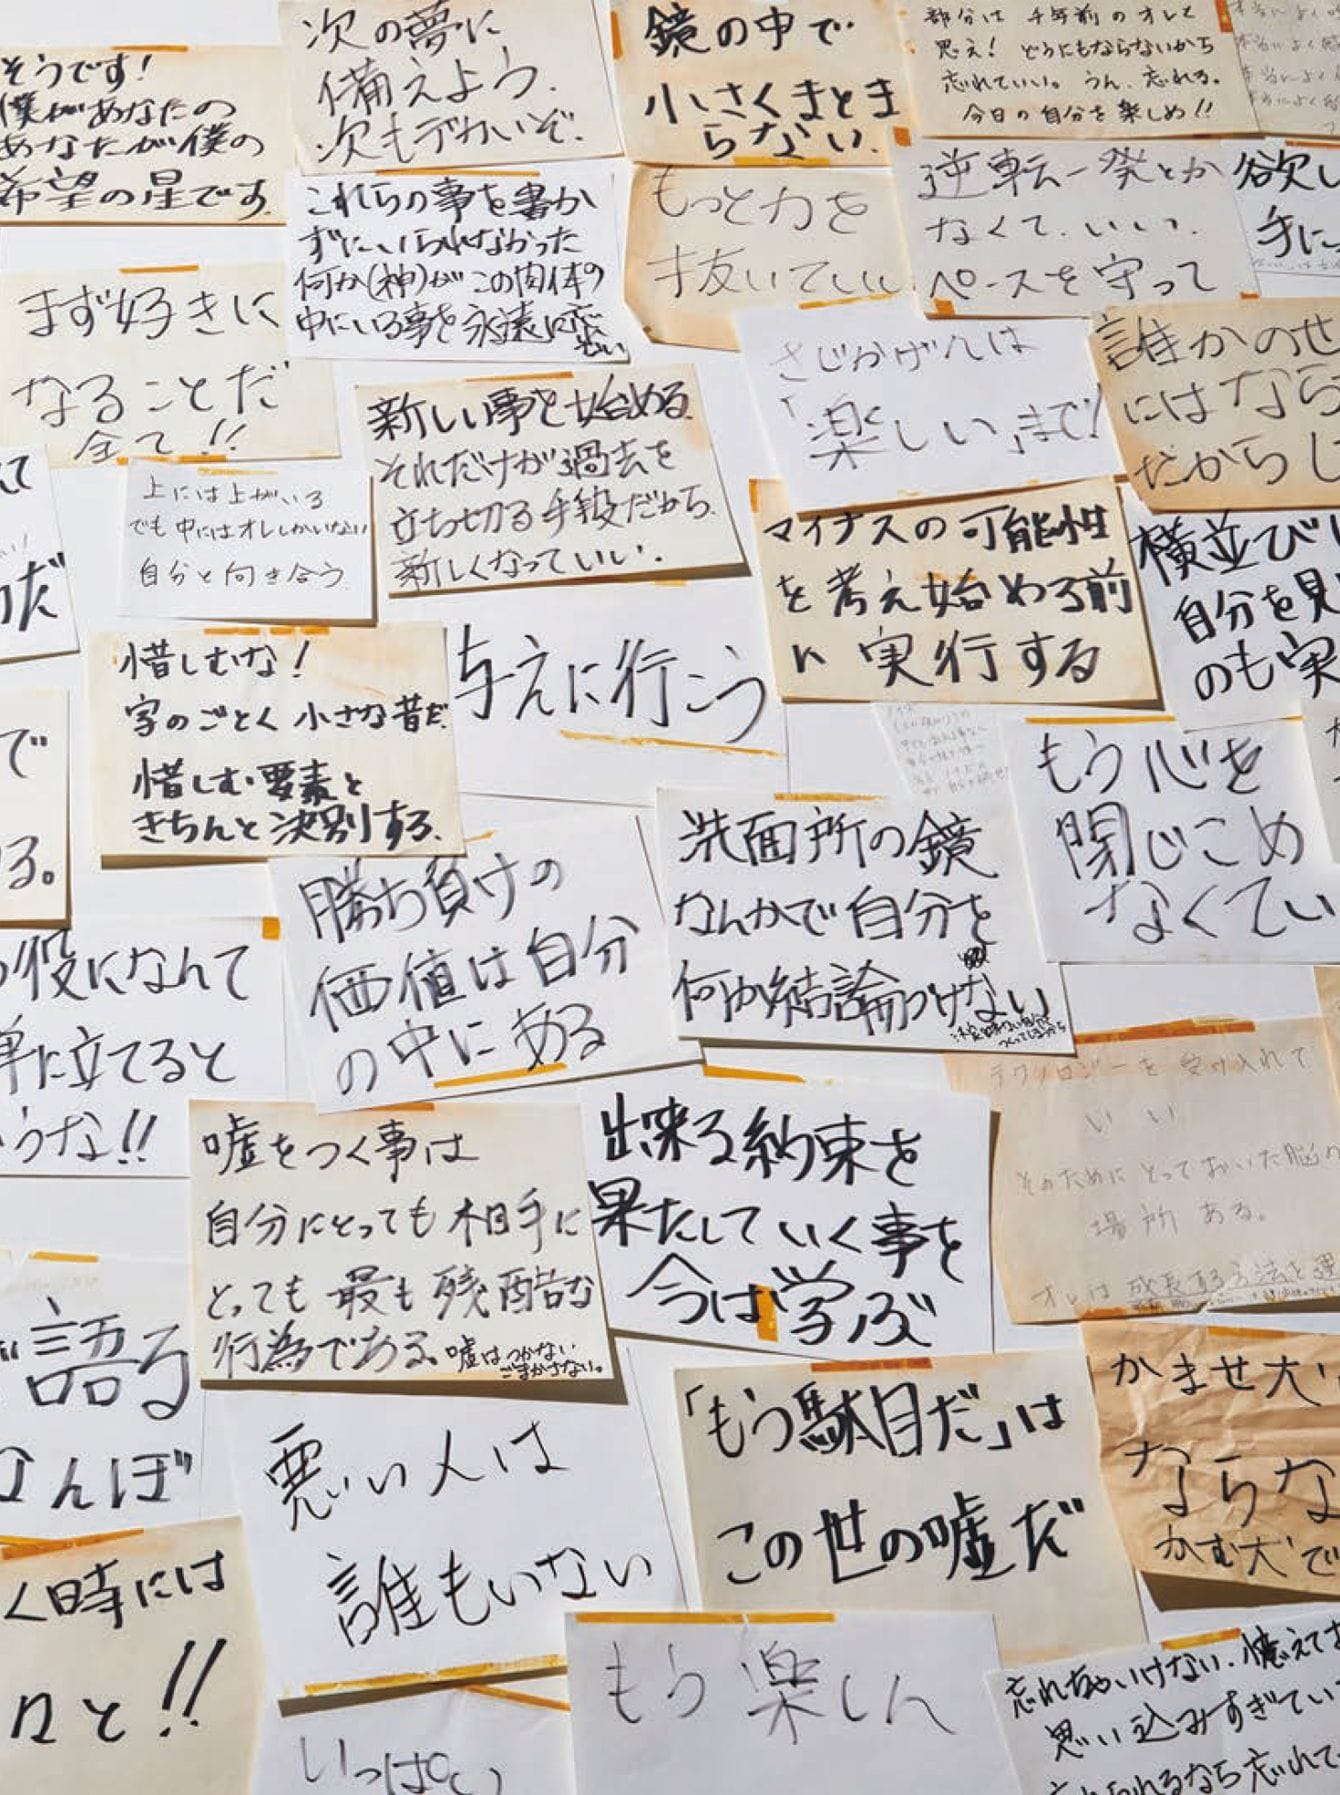 そうです!
僕があなたの
あなたが僕の
希望の星です
次の夢に
備えよう.
次もデカいぞ.
鏡の中で
小さくまとま
らない.
部分は 千年前のオレと
思え! どうにもならないから
忘れていい。うん、忘れる。
今日の自分を楽しめ!!
これらの事を書か
ずにいられなかった
何か(神)がこの肉体の
中にいる事を永遠に忘
もっと力を
抜いていい
逆転一発とか
なくて、いい、
ペースを守って
欲し
手に
まず好きに
なることだ
全て!!
さじかげんは
「楽しい」まで!
誰かのせ
にはなら
だからし
新しい事を始める.
それだけが過去を
立ち切る手段だから.
新しくなっていい.
上には上がいる
でも中にはオレしかいない
自分と向き合う
マイナスの可能性
を考え始める前
に実行する
横並び
自分を見
のも実
惜しむな!
字のごとく小さな昔だ.
惜しむ要素と
きちんと決別する.
与えに行こう
もう心を
閉じこめ
なくてい
で
る。
洗面所の鏡
なんかで自分を
何か結論づけない
勝ち負けの
価値は自分
の中にある
役になんて
に立てると
うな!!
嘘をつく事は
自分にとっても相手に
とっても最も残酷な
行為である。嘘はつかない
ごまかさない。
出来る約束を
果たしていく事を
今は学ぶ
テクノロジーを受け入れて
いい
そのためにとっておいた脳の
場所ある。
オレは成長する方法を
語る
なんぼ
悪い人は
誰もいない
「もう駄目だ」は
この世の嘘だ
かませ犬
ならな
かむ犬で
く時には
ロと!!
いっぱい
もう楽しん
忘れちゃいけない.憶えてお
思い込みすぎてい